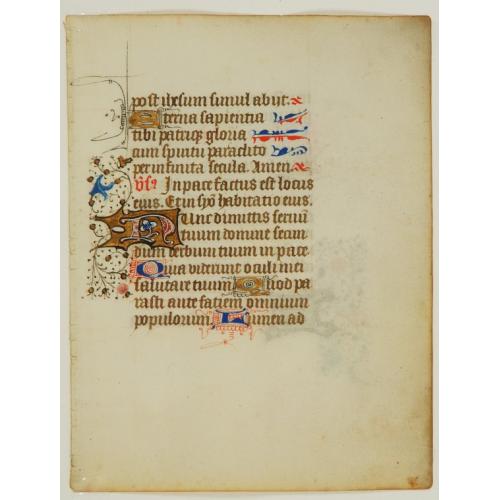 post ihesum simul abijt. x
Eterna sapientia
tibi patrique gloria
cum spiritu paraclito
per infinita secula. Amen. x
V̄s? In pace factus est locus
eius. Et in syō habitatio eius.
Nunc dimittis seruū
tuum domine secun
dum verbum tuum in pace
Quia viderunt oculi mei
salutare tuum Quod pa
rasti ante faciem omnium
populorum Lumen ad